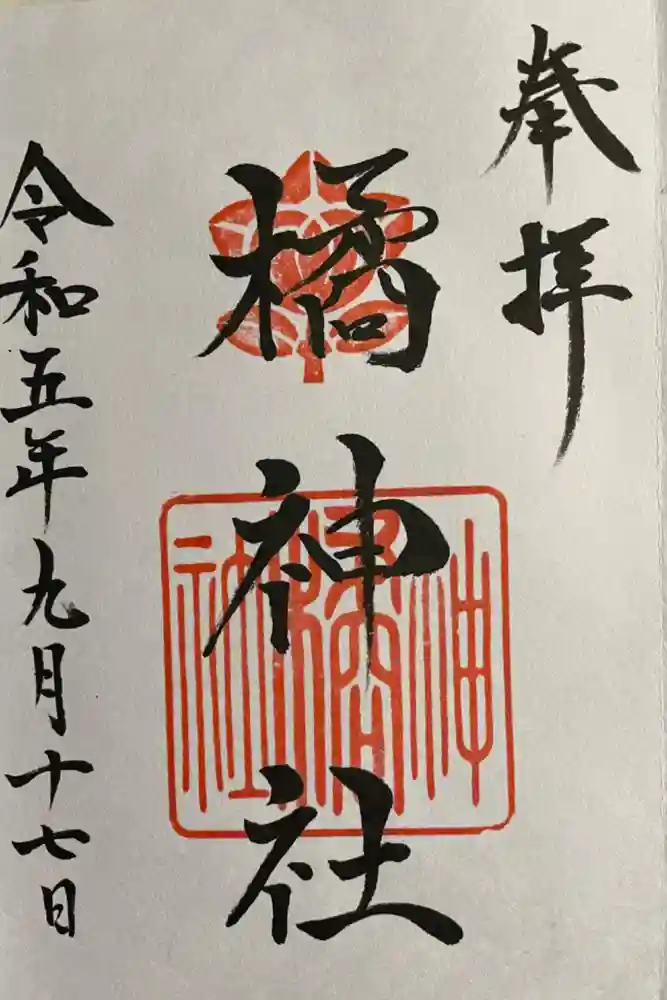 奉拝
橘神社
橘神社
令和五年九月十七日